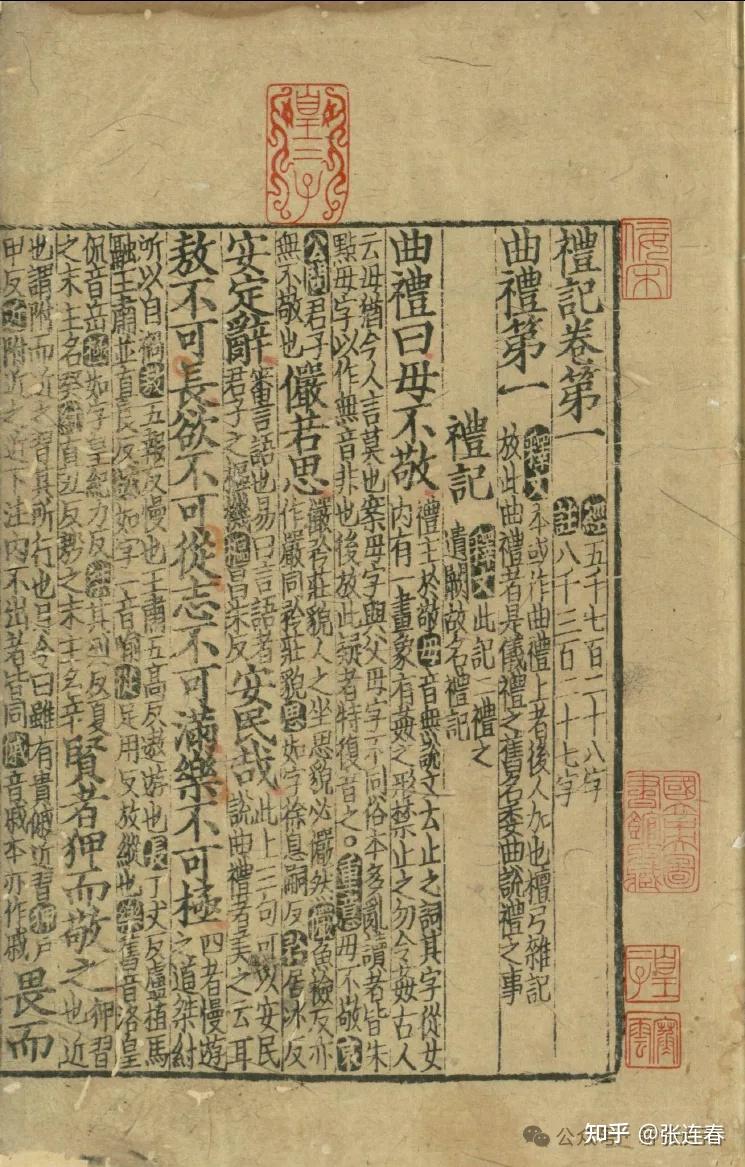 禮記卷第一
經五千七百二十八字
註八千三百二十七字
曲禮第一
釋文本或作曲禮上者後人加也檀弓雜記
放此曲禮者是儀禮之舊名委曲說禮之事
禮記
釋文此記二禮之
遺闕故名禮記
曲禮曰毋不敬
禮主於敬毋音無說文云止之詞其字從女
內有一畫象有姦之形禁止之勿令姦古人
云毋猶今人言莫也案毋字與父毋字不同俗本多亂讀者皆朱
點毋字以作無音非也後放此疑者特復音之○重意毋不敬
公問君子
無不敬也
儼若思
儼矜莊貌人之坐思貌必儼然儼魚檢反亦
作嚴同矜莊貌思如字徐息嗣反矜居冰反
安定辭
審言語也易曰言語者
君子之樞機樞昌朱反
安民哉
此上三句可以安民
說曲禮者美之云耳
敖不可長欲不可從志不可滿樂不可極
四者慢遊
之道桀紂
所以自禍敖五報反慢也王肅五高反遨遊也長丁丈反盧植馬
融王肅並直良反欲如字一音喻從足用反放縱也樂舊音洛皇
侃音岳極如字皇紀力反桀其列反夏
之末主名癸紂直丑反殷之末主名辛
賢者狎而敬之
狎習
也近
也謂附而近之習其所行也月令曰雖有貴戚近習狎戶
甲反近附近之近下注內不出者皆同 音戚本亦作戚
畏而
皇二子
佞宋
寒雲
知乎 @张连春